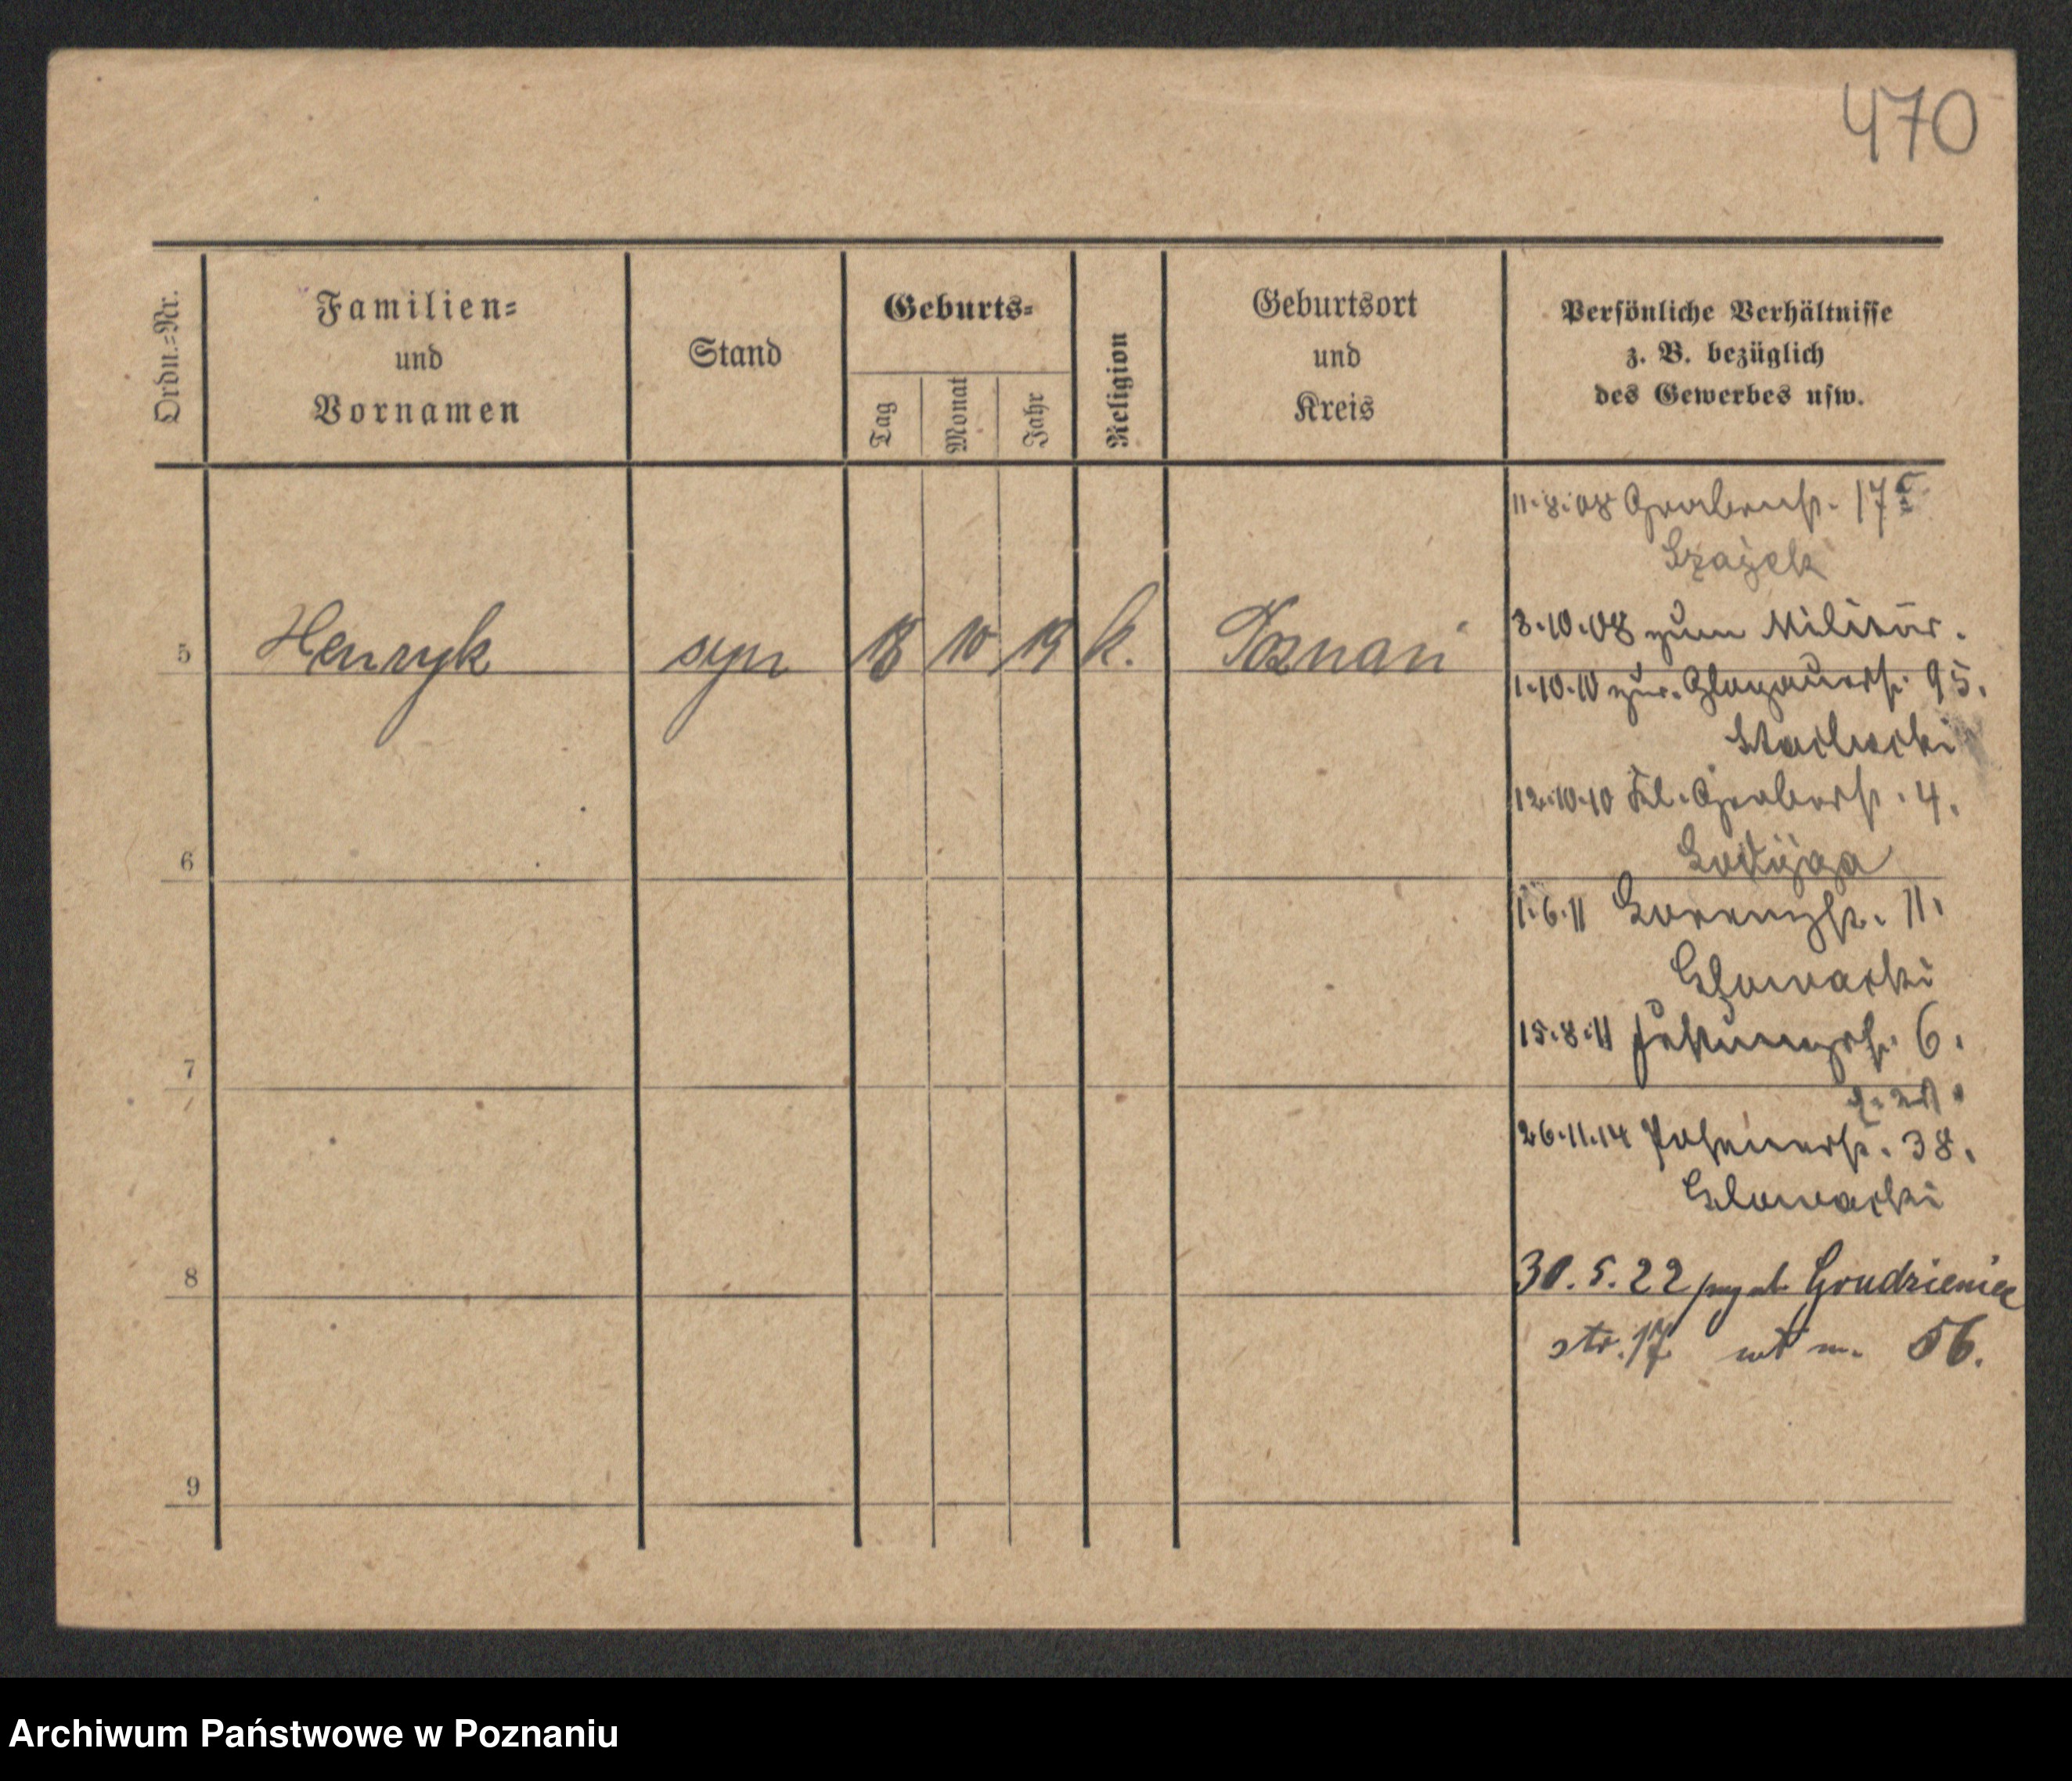 470
Ordn.=Nr.
Familien=
und
Vornamen
Stand
Geburts=
Tag
Monat
Jahr
Religion
Geburtsort
und
Kreis
Persönliche Verhältnisse
z. B. bezüglich
des Gewerbes usw.
11.8.08 Grabenstr. 17
Szajek
3.10.08 zum Militär.
5 Henryk syn 18 10 19 k. Poznań
1.10.10 zur. Glogauerstr. 95.
12.10.10 Kl. Gerberstr. 4.
6
1.6.11 Lorenzstr. 11.
Glowacki
15.8.11 6.
7
26.11.14 Posenerstr. 38.
Glowacki
8
30.5.22 Grudzieniec
str. 17 m. 56.
9
Archiwum Państwowe w Poznaniu